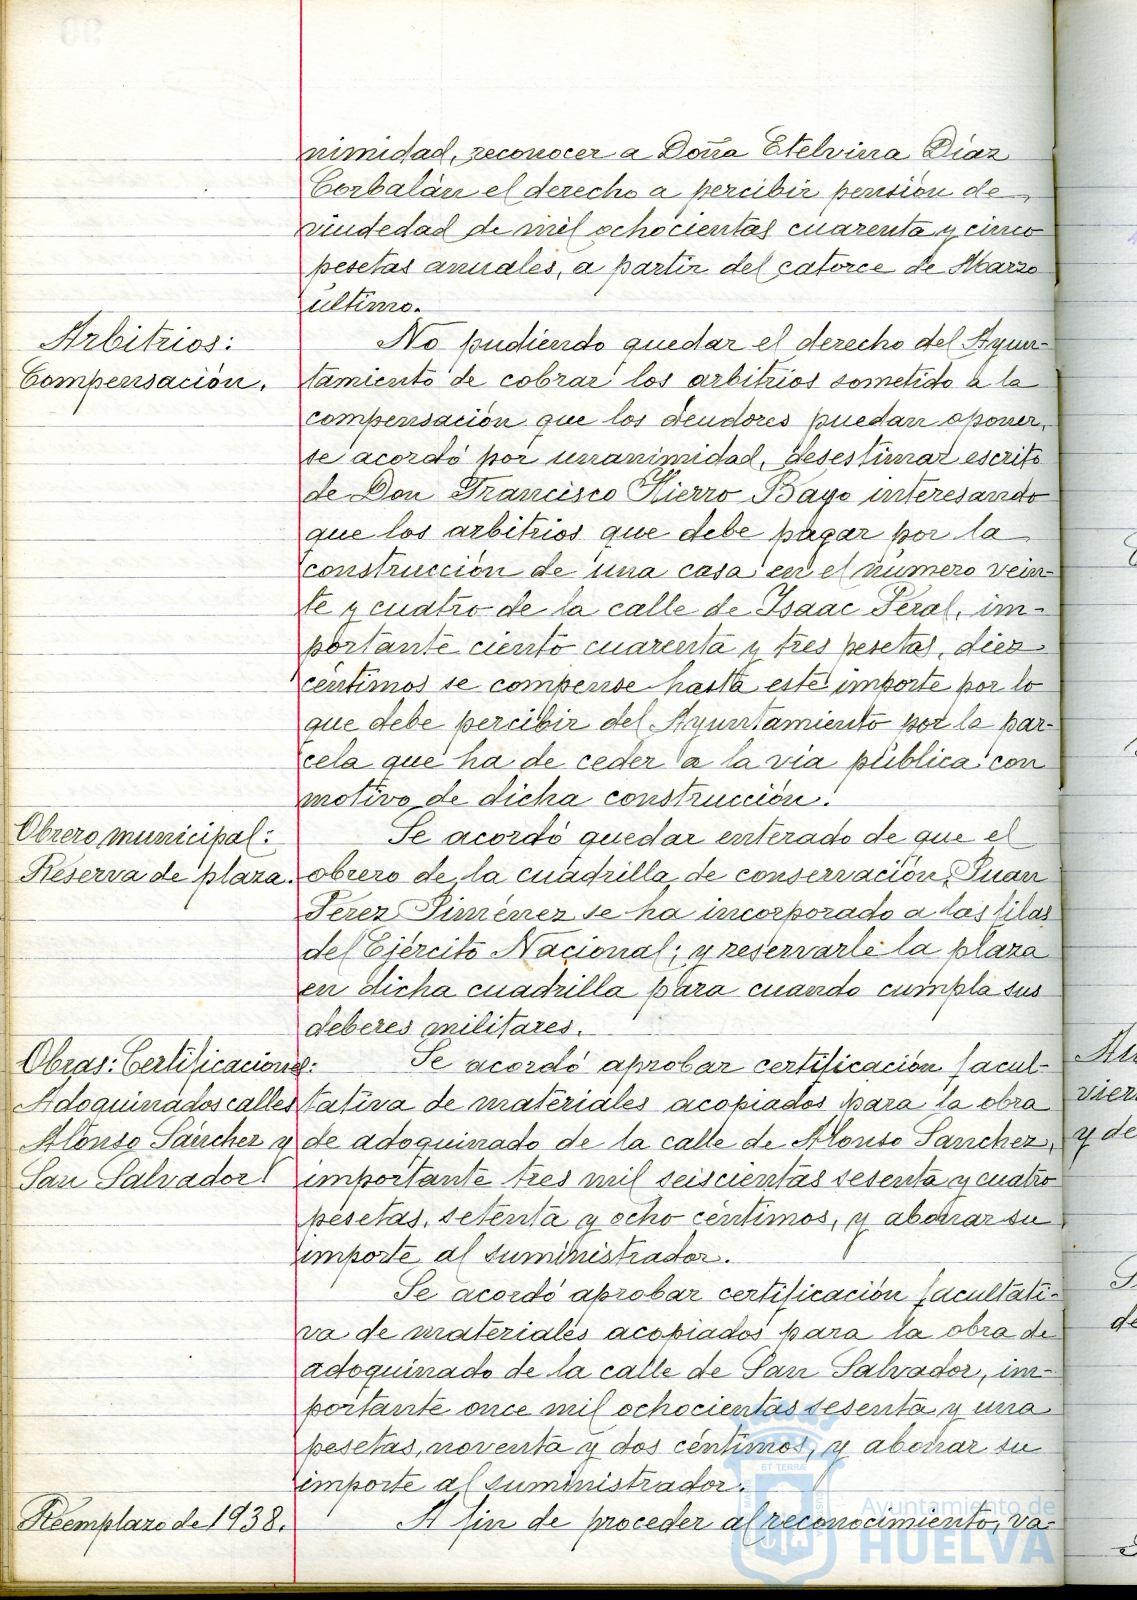 nimidad, reconocer a Doña Etelvina Díaz
Corbalán el derecho a percibir pensión de
viudedad de mil ochocientas cuarenta y cinco
pesetas anuales, a partir del catorce de Marzo
último.
Arbitrios:
Compensación.
No pudiendo quedar el derecho del Ayun-
tamiento de cobrar los arbitrios sometido a la
compensación que los deudores puedan oponer,
se acordó por unanimidad, desestimar escrito
de Don Francisco Hierro Bayo interesando
que los arbitrios que debe pagar por la
construcción de una casa en el número vein-
te y cuatro de la calle de Isaac Peral, im-
portante ciento cuarenta y tres pesetas, diez
céntimos se compense hasta este importe por lo
que debe percibir del Ayuntamiento por la par-
cela que ha de ceder a la vía pública con
motivo de dicha construcción.
Obrero municipal:
Reserva de plaza.
Se acordó quedar enterado de que el
obrero de la cuadrilla de conservación, Juan
Pérez Jiménez se ha incorporado a las filas
del Ejército Nacional; y reservarle la plaza
en dicha cuadrilla para cuando cumpla sus
deberes militares.
Obras: Certificaciones:
Adoquinados calles
Alonso Sánchez y
San Salvador
Se acordó aprobar certificación facul-
tativa de materiales acopiados para la obra
de adoquinado de la calle de Alonso Sanchez,
importante tres mil seiscientas sesenta y cuatro
pesetas, setenta y ocho céntimos, y abonar su
importe al suministrador.
Se acordó aprobar certificación facultati-
va de materiales acopiados para la obra de
adoquinado de la calle de San Salvador, im-
portante once mil ochocientas sesenta y una
pesetas, noventa y dos céntimos, y abonar su
importe al suministrador.
Reemplazo de 1938.
A fin de proceder al reconocimiento, va-
ET TERRÆ
Ayuntamiento de
HUELVA
vier
y de
de